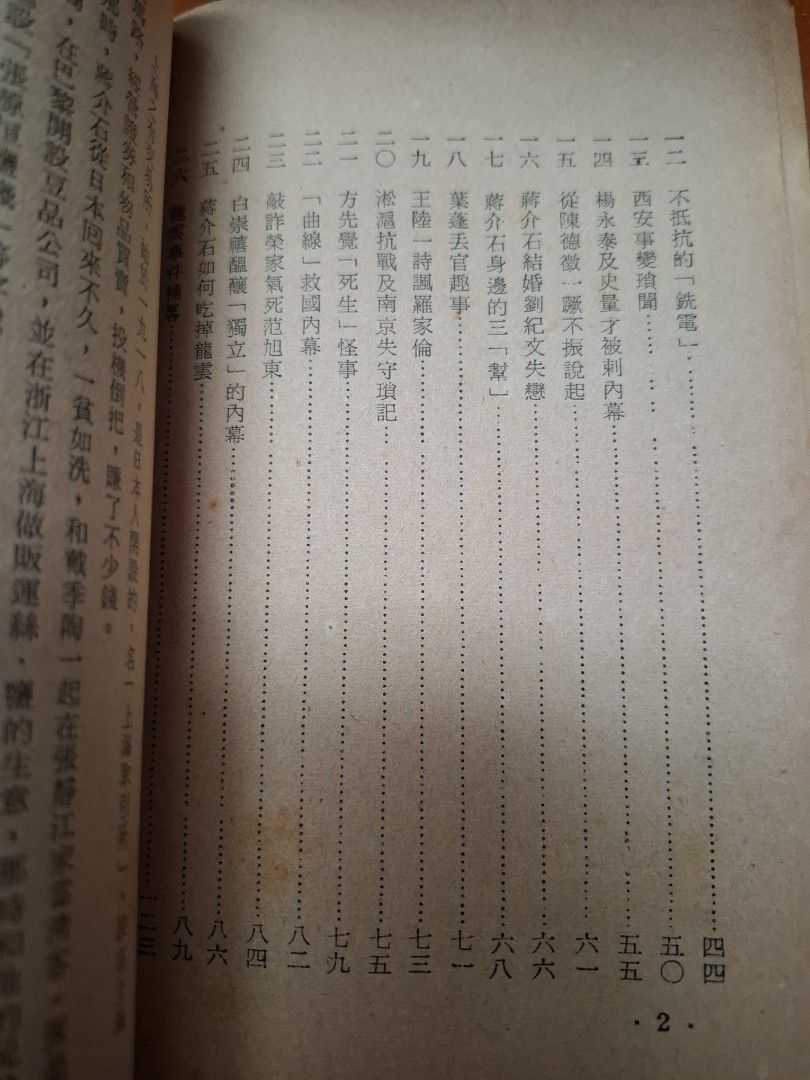 一二　不抵抗的「銑電」………四四
一三　西安事變瑣聞………五〇
一四　楊永泰及史量才被刺內幕………五五
一五　從陳德徵一蹶不振說起………六一
一六　蔣介石結婚劉紀文失戀………六六
一七　蔣介石身邊的三「幫」………六八
一八　葉蓬丟官趣事………七一
一九　王陸一詩諷羅家倫………七三
二〇　淞滬抗戰及南京失守瑣記………七五
二一　方先覺「死生」怪事………七九
二二　「曲線」救國內幕………八二
二三　敲詐榮家氣死范旭東………八四
二四　白崇禧醞釀「獨立」的內幕………八六
二五　蔣介石如何吃掉龍雲………八九
二六　　事件補　………一二三
· 2 ·
是日本人開設的，名
物品買賣，投機倒把，賺了不少錢。
蔣介石從日本回來不久，一貧如洗，和戴季陶一起在張靜江家當
在巴黎開設豆品公司，並在浙江上海做販運絲、鹽的生意，